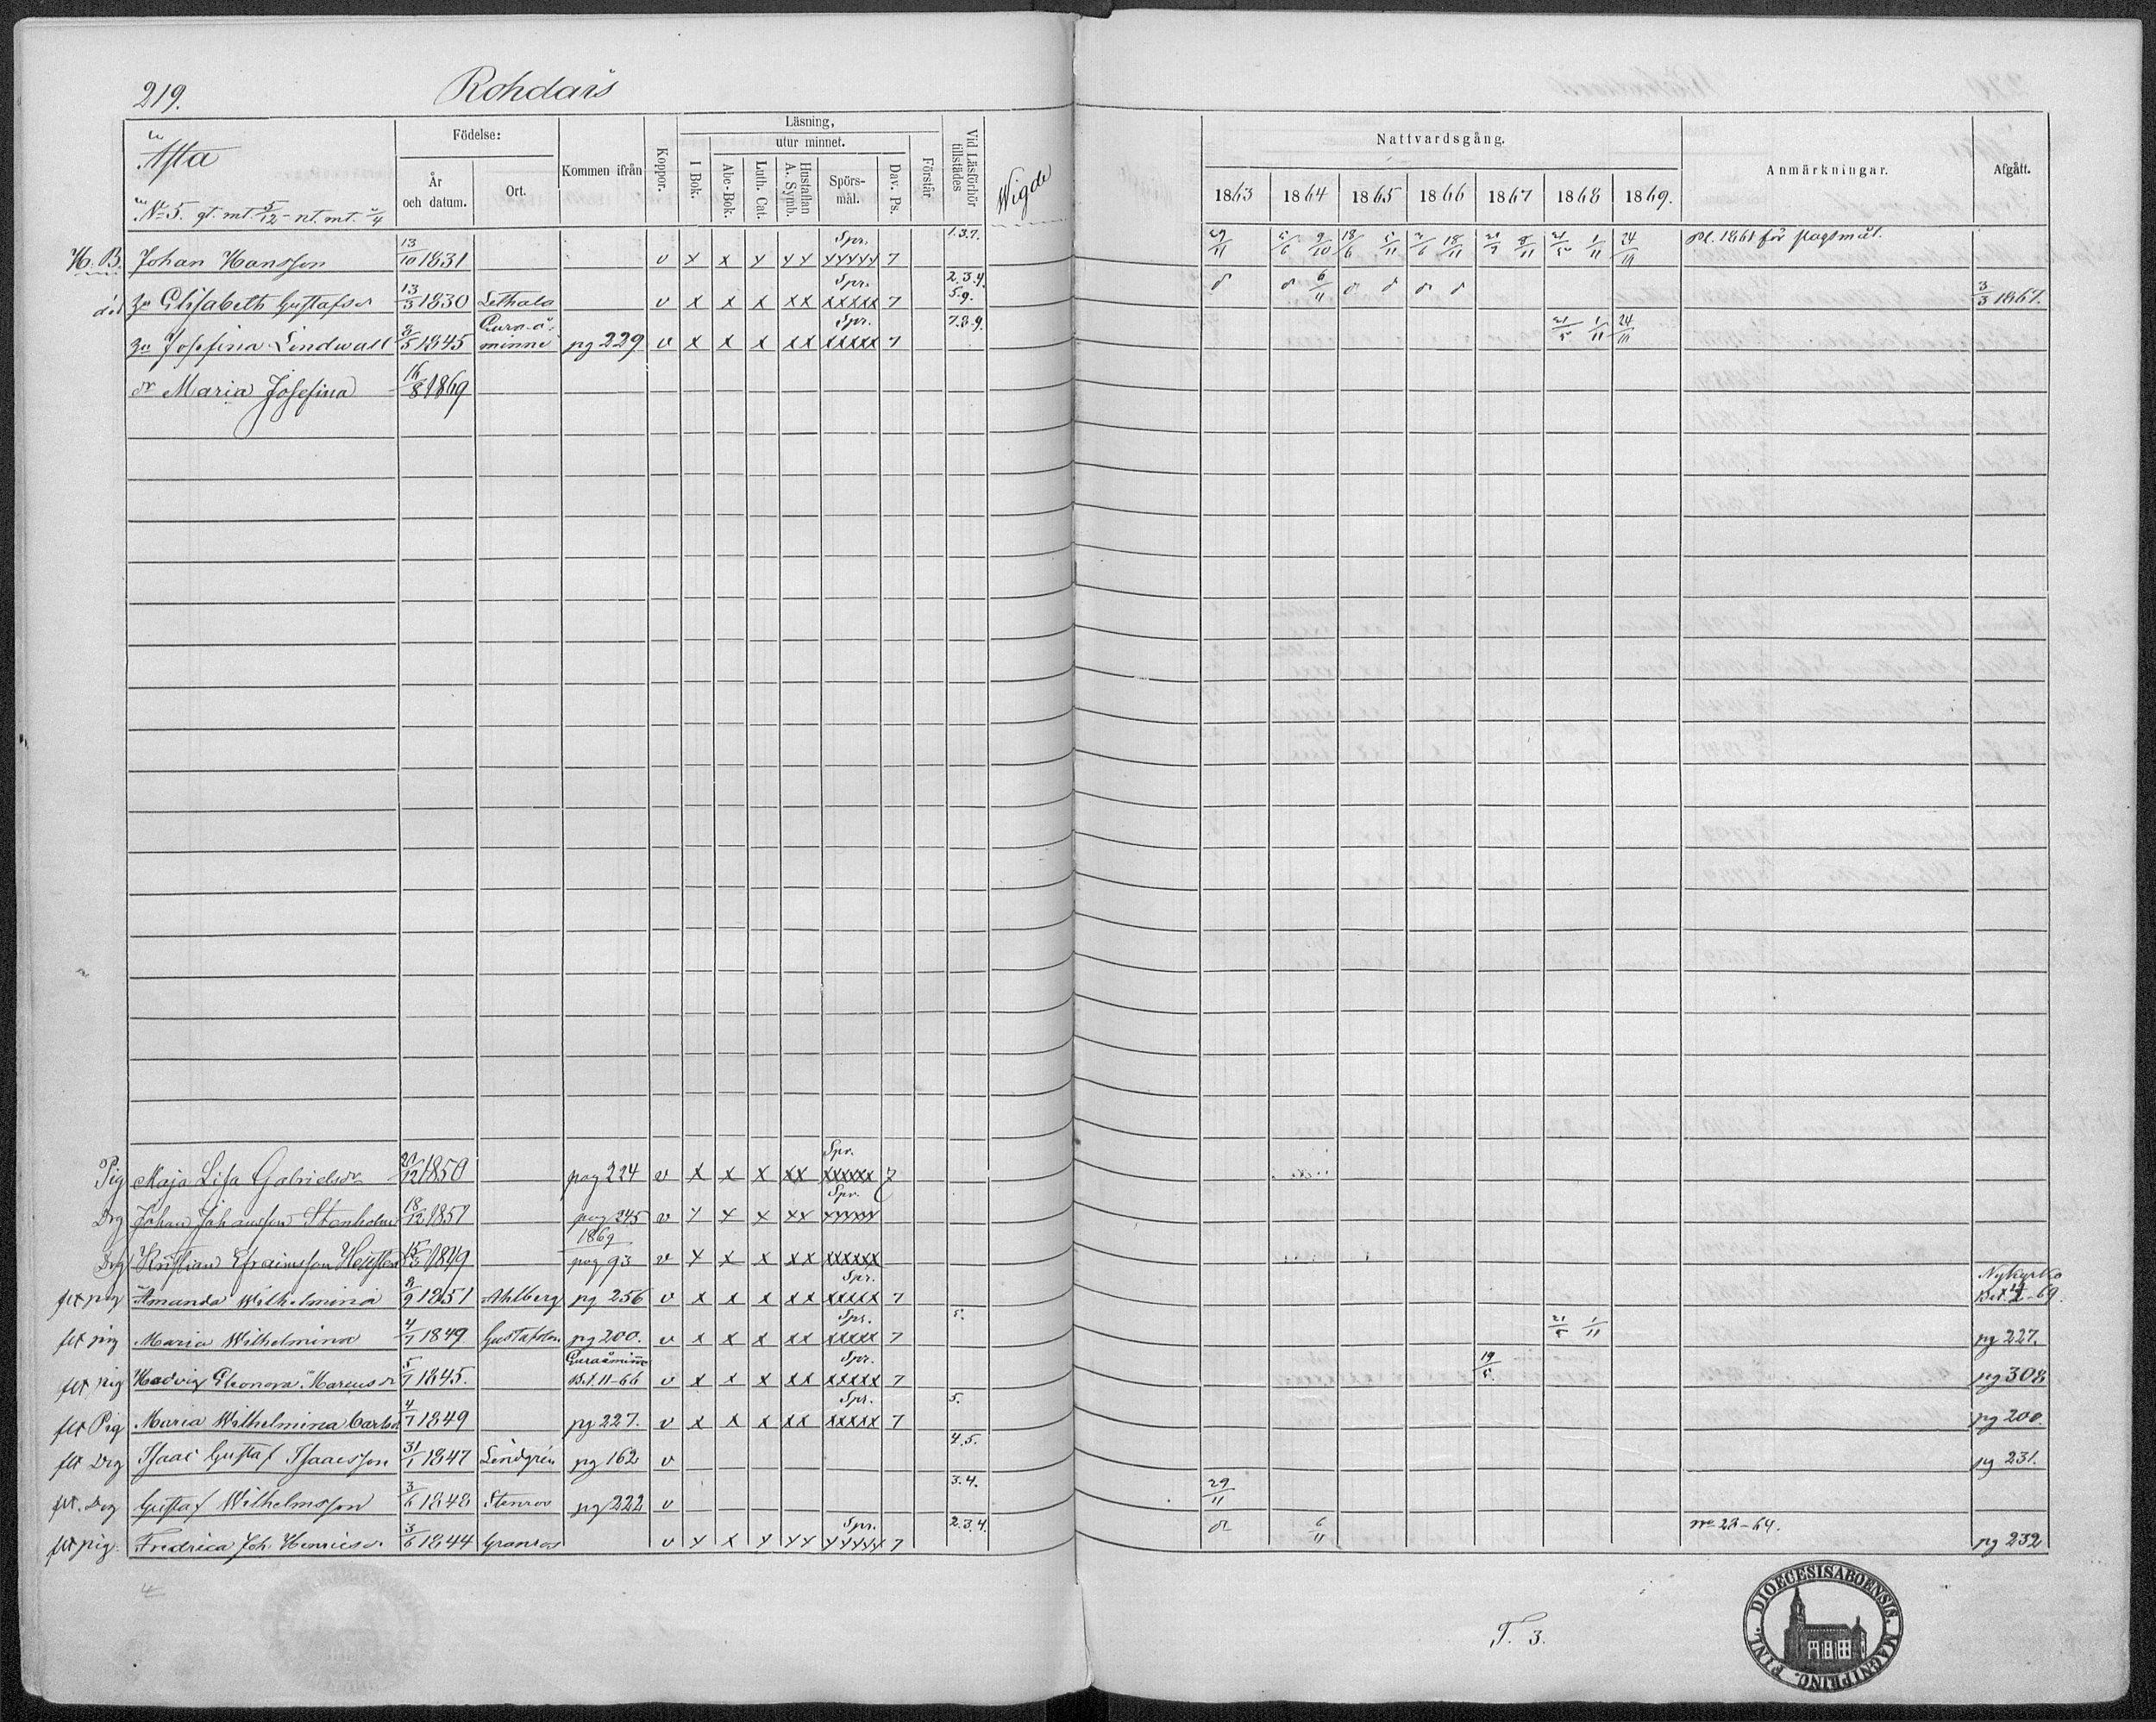 219. Rohdais
Asta
N:o 5. gt. mt. 5/12 - nt. mt. 1/4
Födelse:
År och datum.
Ort.
Kommen ifrån
Koppor.
Läsning,
utur minnet.
I Bok.
Abc-Bok.
Luth. Cat.
Hustaflan A. Symb.
Spörs-mål.
Dav. Ps.
Förstår
Vid Läsförhör tillstädes
Wigde
Nattvardsgång.
1863 1864 1865 1866 1867 1868 1869.
Anmärkningar.
Afgått.
H. B. Johan Hansson 13/10 1831 v x x x xx Spr. xxxxx 7 1.3.7. 29/11 9/10 18/6 5/11 18/11 8/11 1/11 24/10 1861 för slagsmål.
död Elisabeth Gustafsdr 13/3 1830 Lethala v x x x xx Spr. xxxxx 7 2.3.4. 5.9. 6/11 3/3 1867.
Josefina Lindwall 3/5 1845 Euraåminne pg 229 v x x x xx Spr. xxxxx 7 7.8.9. 21/5 1/11 24/10
dr Maria Josefina 16/8 1869
Pig Maja Lisa Gabrielsdr 20/12 1850 pag 224 v x x x xx Spr. xxxxx 7
Drg Johan Johansson Stenholm 18/12 1851 pag 245 v x x x xx Spr. xxxxx
Drg Kristian Efraimsson 15/5 1849 1869 pag 93 v x x x xx xxxxx
flt pig Amanda Wilhelmina 2/9 1851 Ahlberg pg 256 v x x x xx Spr. xxxxx 7 Nykyrko Bet. -69
flt pig Maria Wilhelmina 4/7 1849 pg 200. v x x x xx Spr. xxxxx 7 5. 21/5 1/11 pg 227.
flt pig Hedvig Eleonora Marcusdr 5/7 1845. Euraåminne Bet. 11-66 v x x x xx Spr. xxxxx 7 19/5 pg 308
flt Pig Maria Wilhelmina Carlsdr 4/7 1849 pg 227. v x x x xx Spr. xxxxx 7 5. pg 200.
flt Drg Isaac Gustaf Isaacsson 31/1 1847 Lindgrén pg 162 v 4.5. pg 231.
flt. Drg Gustaf Wilhelmsson 3/6 1848 Stenros pg 222 v 3.4. 29/11
flt pig. Fredrica Joh. Henricsdr 3/6 1844 Granros v x x x xx Spr. xxxxx 7 2.3.4. 6/11 -64. pg 232
T. 3.
DIOECESIS ABOENSIS. MAGNI PRINC. FINL.